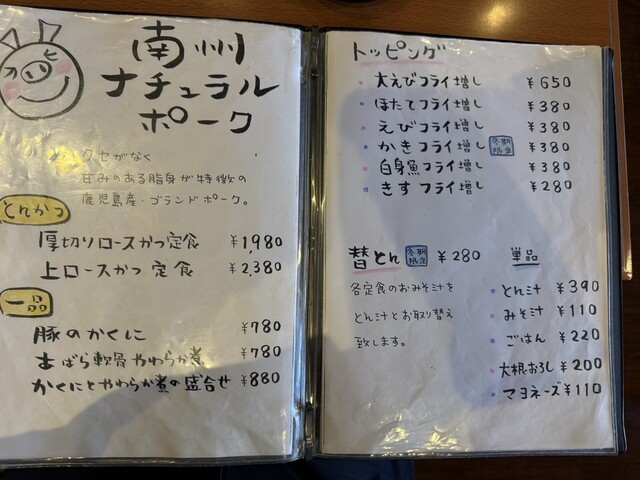 南州
ナチュラル
ポーク
クセがなく
甘みのある脂身が特徴の
鹿児島産・ブランドポーク。
とんかつ
厚切りロースかつ定食 ¥1,980
上ロースかつ定食 ¥2,380
一品
豚のかくに ¥780
あばら軟骨やわらか煮 ¥780
かくにとやわらか煮の盛合せ ¥880
トッピング
大えびフライ増し ¥650
ほたてフライ増し ¥380
えびフライ増し ¥380
かきフライ増し 冬期限定 ¥380
白身魚フライ増し ¥380
きすフライ増し ¥280
替とん 冬期限定 ¥280
各定食のおみそ汁を
とん汁とお取り替え
致します。
単品
とん汁 ¥390
みそ汁 ¥110
ごはん ¥220
大根おろし ¥200
マヨネーズ ¥110